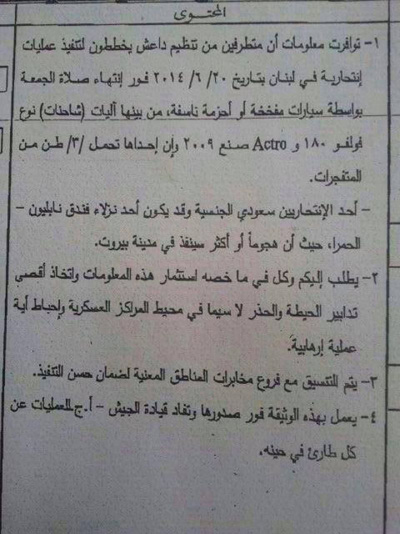 المحتوى
١- توافرت معلومات أن متطرفين من تنظيم داعش يخططون لتنفيذ عمليات
إنتحارية في لبنان بتاريخ ٢٠/ ٦/ ٢٠١٤ فور إنتهاء صلاة الجمعة
بواسطة سيارات مفخخة أو أحزمة ناسفة، من بينها آليات (شاحنات) نوع
فولفو ١٨٠ و Actro صنع ٢٠٠٩ وإن إحداها تحمل /٣/ طن من
المتفجرات.
- أحد الإنتحاريين سعودي الجنسية وقد يكون أحد نزلاء فندق نابليون –
الحمراء، حيث أن هجوماً أو أكثر سينفذ في مدينة بيروت.
٢- يطلب إليكم وكل في ما خصه استثمار هذه المعلومات واتخاذ أقصى
تدابير الحيطة والحذر لا سيما في محيط المراكز العسكرية وإحباط أية
عملية إرهابية.
٣- يتم التنسيق مع فروع مخابرات المناطق المعنية لضمان حسن التنفيذ.
٤- يعمل بهذه الوثيقة فور صدورها وتفاد قيادة الجيش – أ.ج.للعمليات عن
كل طارئ في حينه.